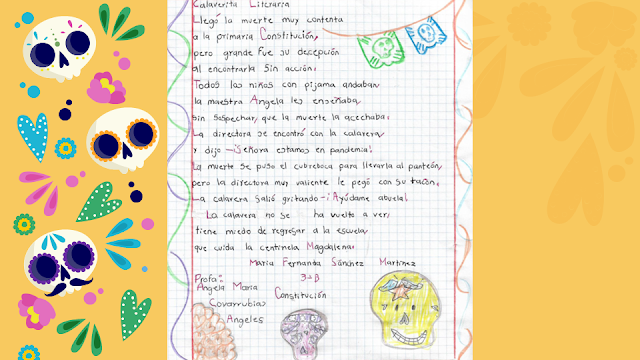 Calaverita Literaria
Llegó la muerte muy contenta
a la primaria Constitución,
pero grande fue su decepción
al encontrarla sin acción.
Todos los niños con pijama andaban
la maestra Angela les enseñaba,
sin sospechar, que la muerte la acechaba.
La directora se encontró con la calavera,
y dijo -¡Señora estamos en pandemia!
La muerte se puso el cubreboca para llevarla al panteón,
pero la directora muy valiente le pegó con su tacón.
La calavera salió gritando -¡Ayúdame abuela!
La calavera no se ha vuelto a ver,
tiene miedo de regresar a la escuela,
que cuida la centinela Magdalena.
María Fernanda Sánchez Martínez
Profa: 3-B
Angela María
Covarrubias Constitución
Angeles